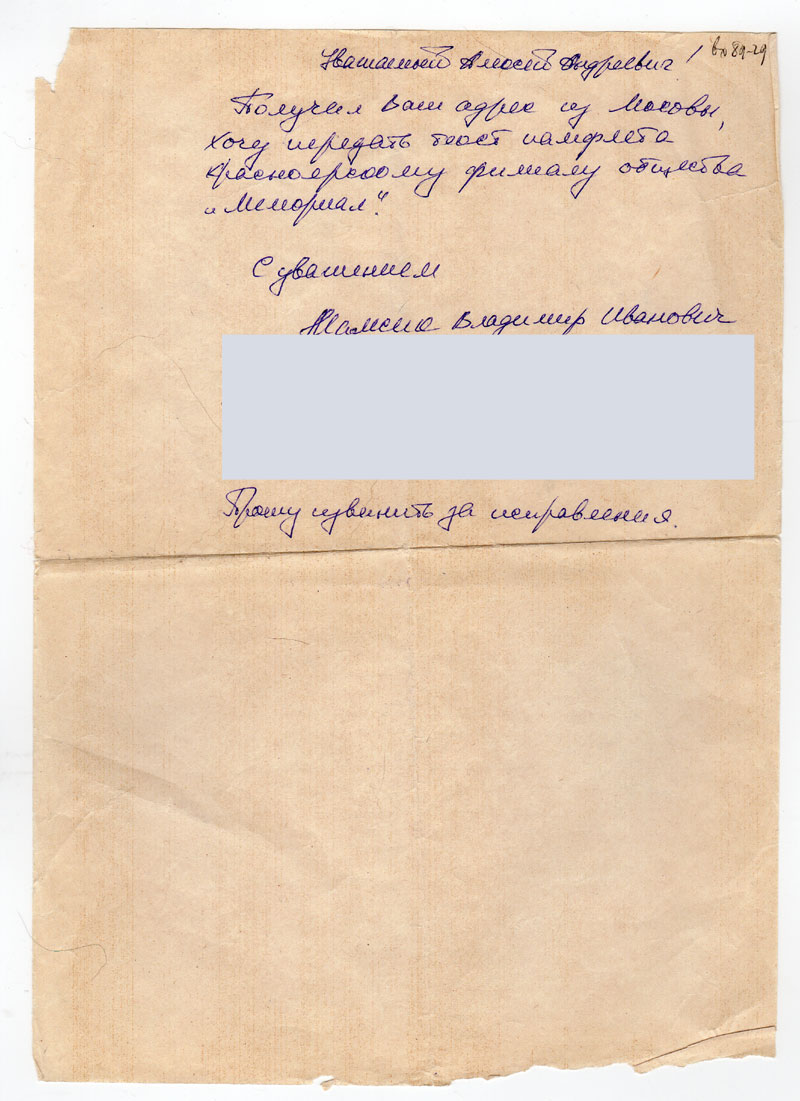 вх 89-29
Уважаемый Алексей Андреевич!
Получил Ваш адрес из Москвы,
хочу передать текст памфлета
Красноярскому филиалу общества
„Мемориал".
С уважением
Владимир Иванович
Прошу извинить за исправления.